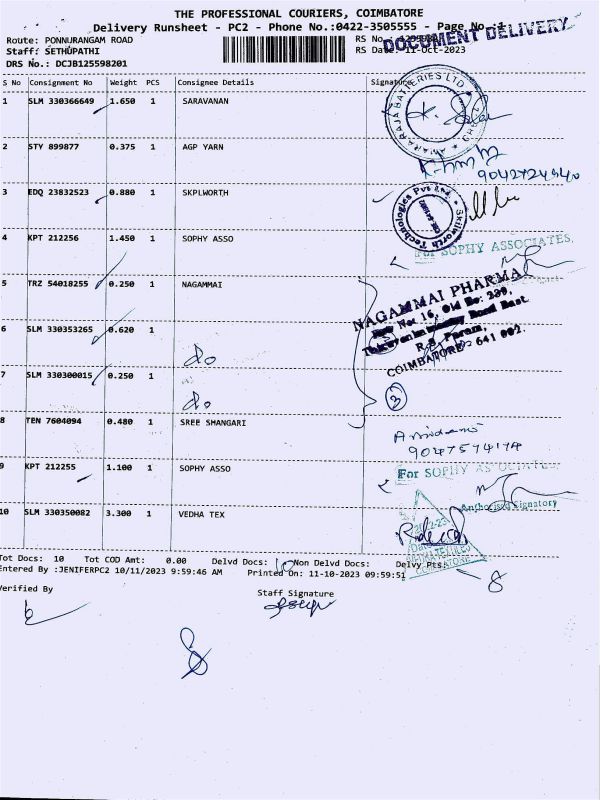 THE PROFESSIONAL COURIERS, COIMBATORE
Delivery Runsheet - PC2 - Phone No.:0422-3505555 - Page No.:1
DOCUMENT DELIVERY
Route: PONNURANGAM ROAD
RS No.
Staff: SETHUPATHI
RS Date: 11-Oct-2023
DRS No.: DCJB125598201
S No Consignment No Weight PCS Consignee Details Signature
1 SLM 330366649 1.650 1 SARAVANAN
AMARARAJA BATTERIES LTD
2 STY 899877 0.375 1 AGP YARN
9042724940
3 EDQ 23832523 0.880 1 SKPLWORTH
Skilworth Technologies Pvt Ltd.
4 KPT 212256 1.450 1 SOPHY ASSO
For SOPHY ASSOCIATES,
5 TRZ 54018255 0.250 1 NAGAMMAI
NAGAMMAI PHARMA
New No: 16, Old No: 239,
Road East,
R.S. Puram,
COIMBATORE - 641 002.
6 SLM 330353265 0.620 1
do
7 SLM 330300015 0.250 1
do
3
8 TEN 7604094 0.480 1 SREE SHANGARI
9047574174
9 KPT 212255 1.100 1 SOPHY ASSO
For SOPHY ASSOCIATES,
Authorised Signatory
10 SLM 330350082 3.300 1 VEDHA TEX
COIMBATORE
Tot Docs: 10 Tot COD Amt: 0.00 Delvd Docs: 10 Non Delvd Docs: Delvy Pts: 8
Entered By :JENIFERPC2 10/11/2023 9:59:46 AM Printed On: 11-10-2023 09:59:51
Verified By
Staff Signature